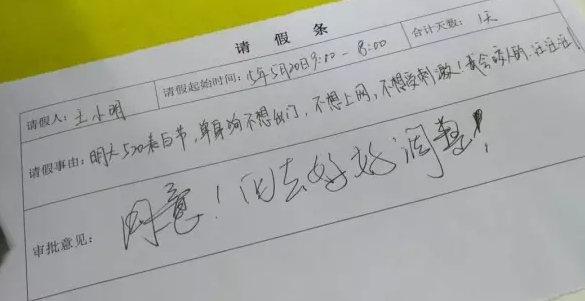 请假条
请假人：王小明 请假起始时间：15年5月20日9:00-8:00 合计天数：1天
请假事由：明天520表白节，单身狗不想出门，不想上网，不想受刺激！我会疯掉的.汪汪汪!
审批意见：同意！回去好好调整！